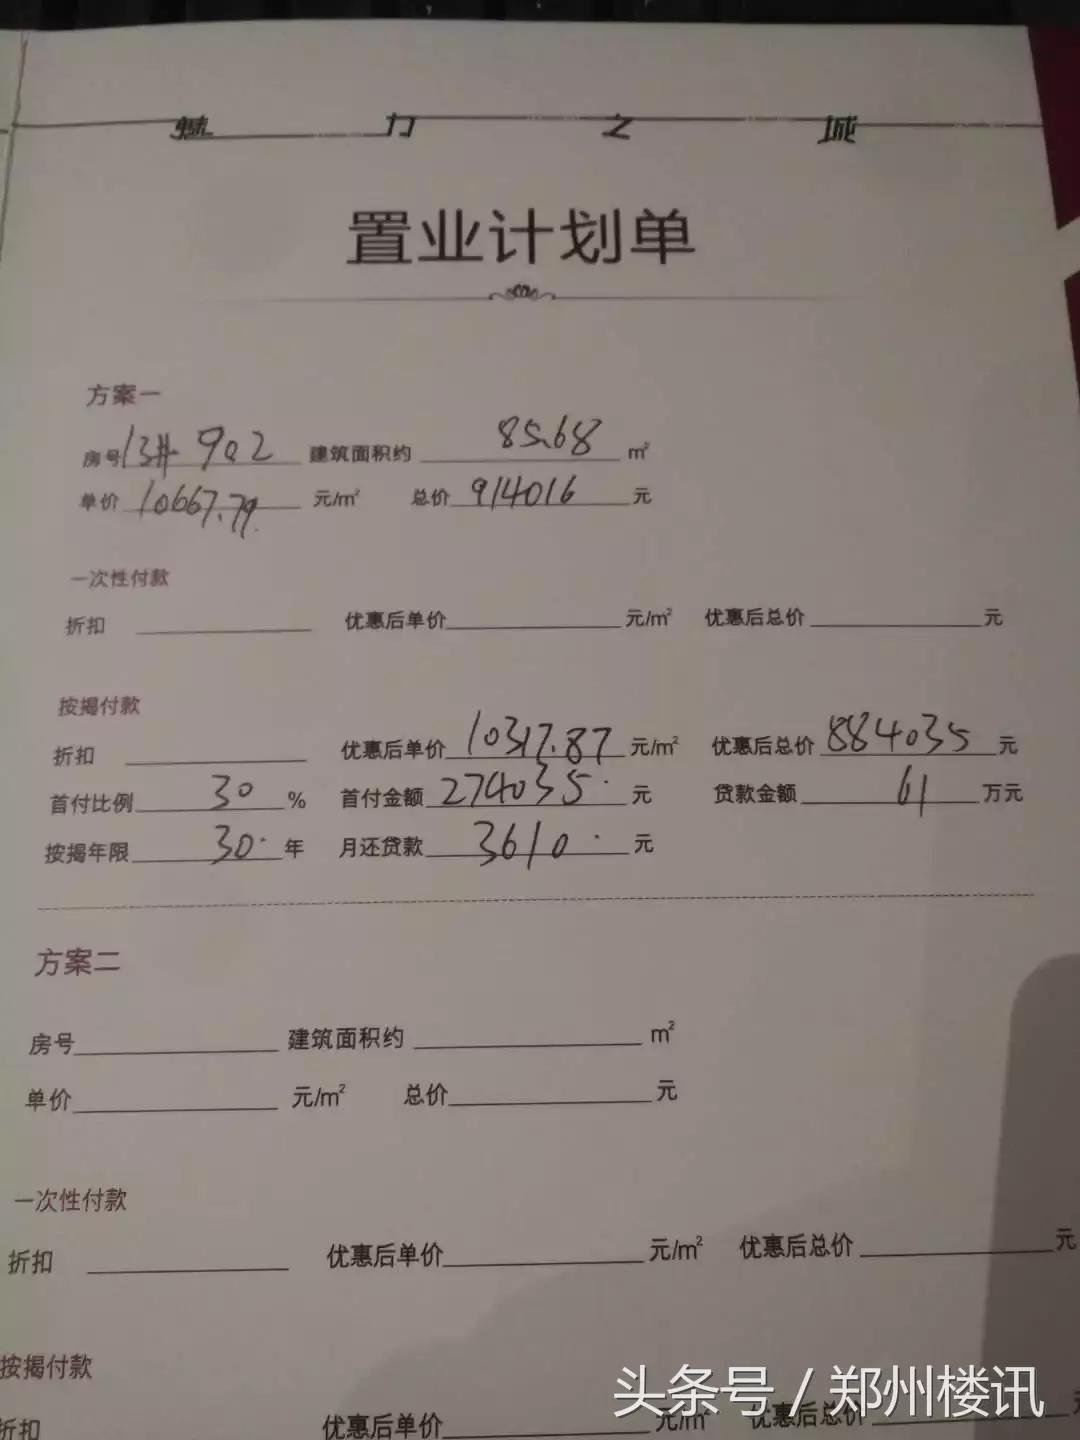 魅力之城
置业计划单
方案一
房号 13# 902 建筑面积约 85.68 m²
单价 10667.79 元/m² 总价 914016 元
一次性付款
折扣 优惠后单价 元/m² 优惠后总价 元
按揭付款
折扣 优惠后单价 10317.87 元/m² 优惠后总价 884035 元
首付比例 30 % 首付金额 274035 元 贷款金额 61 万元
按揭年限 30 年 月还贷款 3610 元
方案二
房号 建筑面积约 m²
单价 元/m² 总价 元
一次性付款
折扣 优惠后单价 元/m² 优惠后总价 元
按揭付款
折扣 优惠后单价 元/m² 优惠后总价 元
头条号 / 郑州楼讯